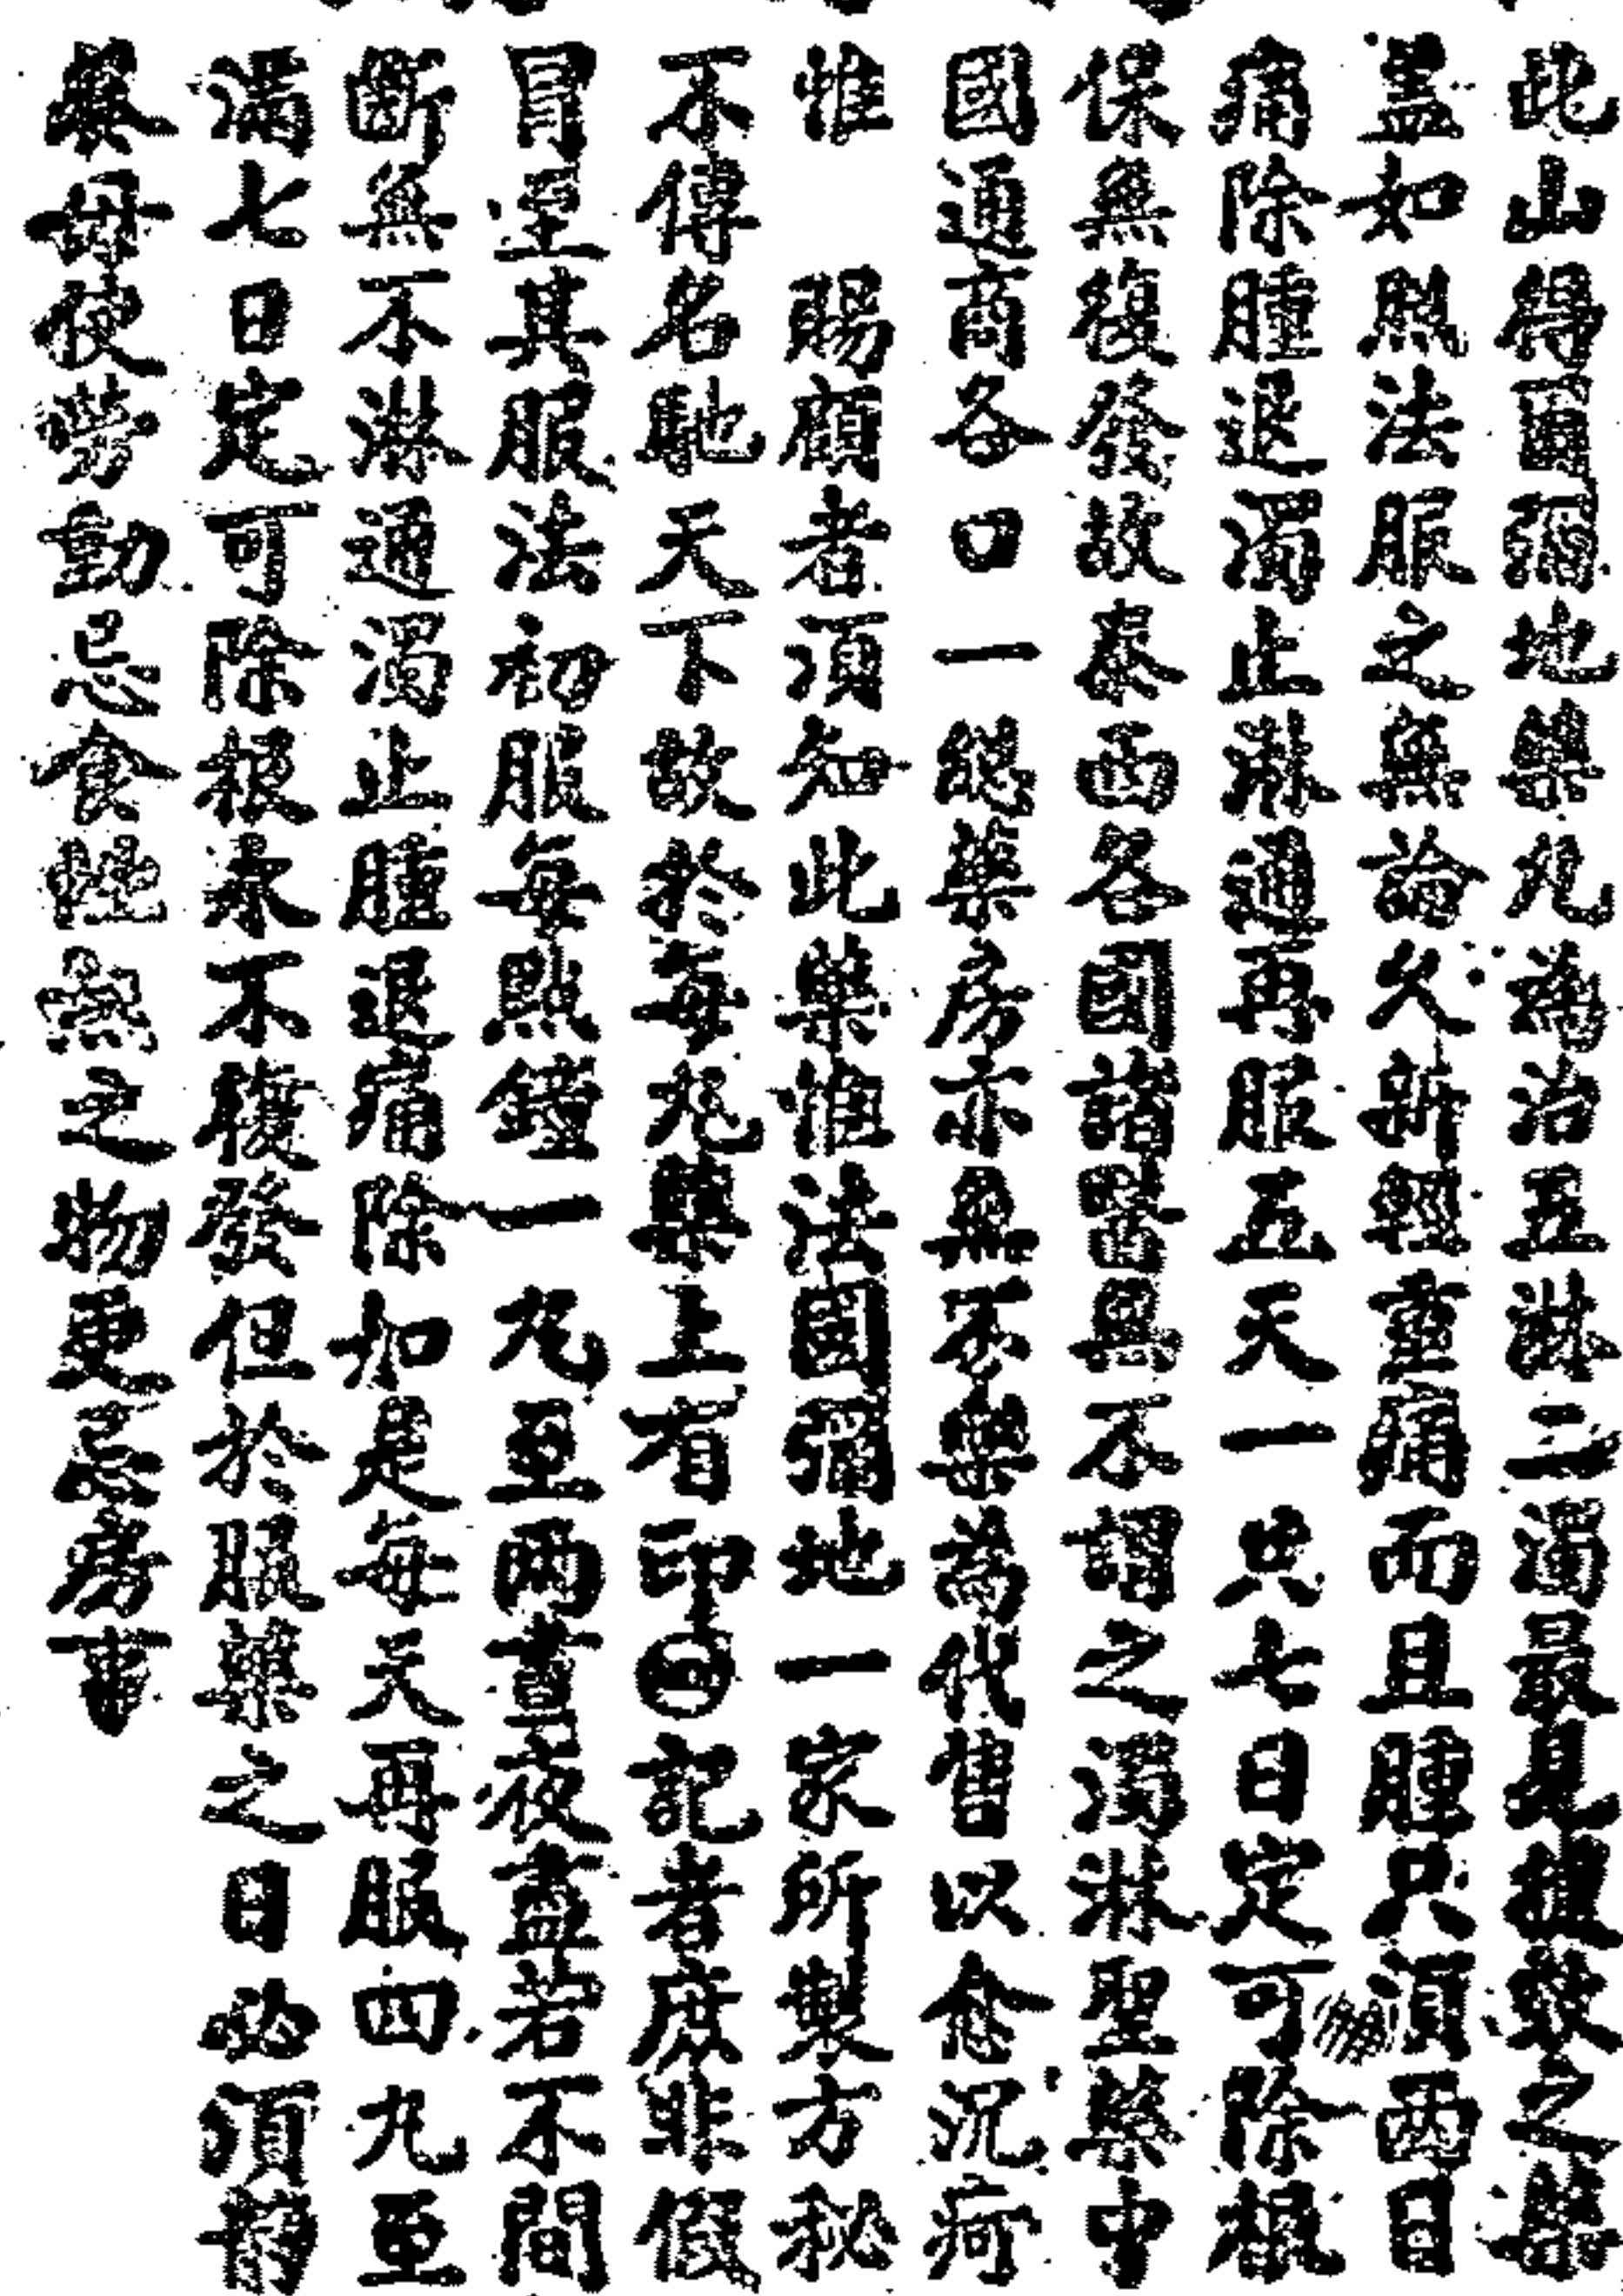 此山得爾彌地藥丸為治五淋二濁最見捷效之藥
蓋如照法服之無論久新輕重痛而且腫只須兩日
痛除腫退濁止淋通再服五天一共七日定可除根
保無復發故泰西各國諸醫無不謂之濁淋聖藥中
國通商各口一總藥房亦無不樂為代售以愈沉疴
惟　賜顧者須知此藥惟法國彌地一家所製方秘
不傳名馳天下故於每丸藥上有印記者庶非假
冒至其服法初服每點鐘一丸至兩晝夜盡若不間
斷無不淋通濁止腫退痛除如是每天再服四九至
滿七日定可除根永不復發但於服藥之日必須靜
養毋使勞動忌食性熱之物更忌房事